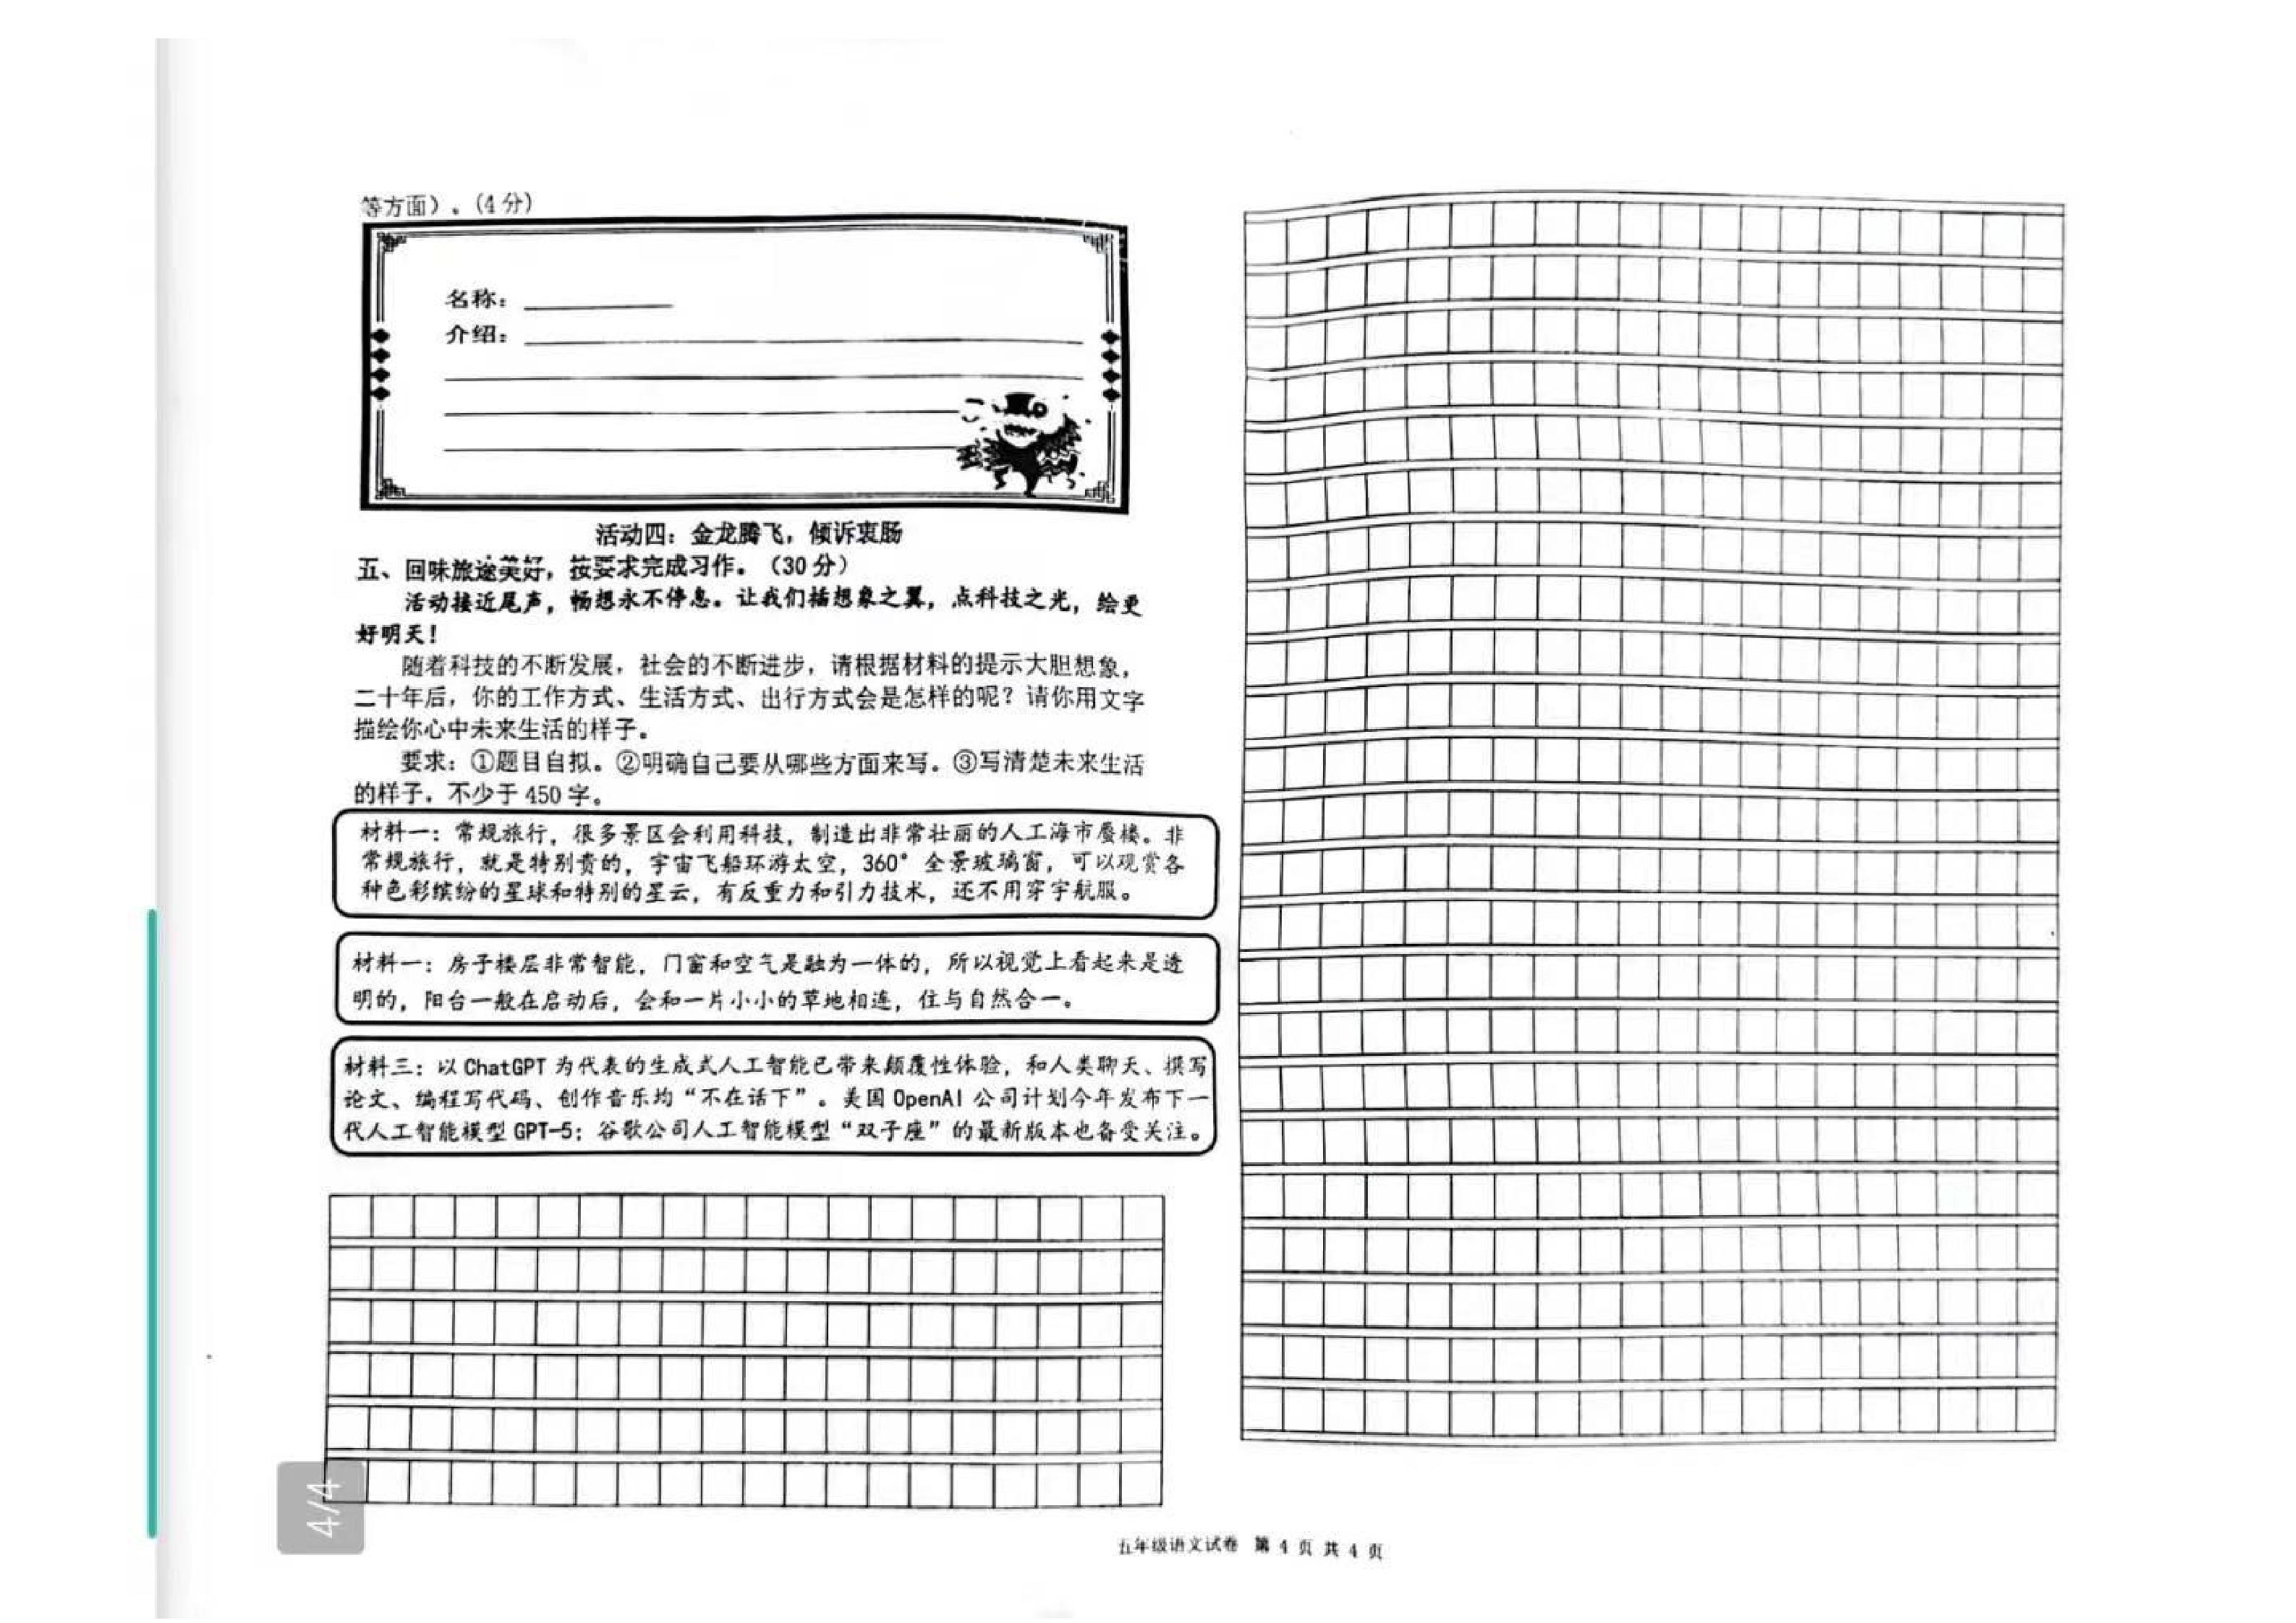 等方面）。(4分)
名称：
介绍：
活动四：金龙腾飞，倾诉衷肠
五、回味旅途美好，按要求完成习作。（30分）
活动接近尾声，畅想永不停息。让我们插想象之翼，点科技之光，绘更
好明天！
随着科技的不断发展，社会的不断进步，请根据材料的提示大胆想象，
二十年后，你的工作方式、生活方式、出行方式会是怎样的呢？请你用文字
描绘你心中未来生活的样子。
要求：①题目自拟。②明确自己要从哪些方面来写。③写清楚未来生活
的样子，不少于450字。
材料一：常规旅行，很多景区会利用科技，制造出非常壮丽的人工海市蜃楼。非
常规旅行，就是特别贵的，宇宙飞船环游太空，360°全景玻璃窗，可以观赏各
种色彩缤纷的星球和特别的星云，有反重力和引力技术，还不用穿宇航服。
材料一：房子楼层非常智能，门窗和空气是融为一体的，所以视觉上看起来是透
明的，阳台一般在启动后，会和一片小小的草地相连，住与自然合一。
材料三：以ChatGPT为代表的生成式人工智能已带来颠覆性体验，和人类聊天、撰写
论文、编程写代码、创作音乐均“不在话下”。美国OpenAI公司计划今年发布下一
代人工智能模型GPT-5；谷歌公司人工智能模型“双子座”的最新版本也备受关注。
4/4
五年级语文试卷 第 4 页 共 4 页